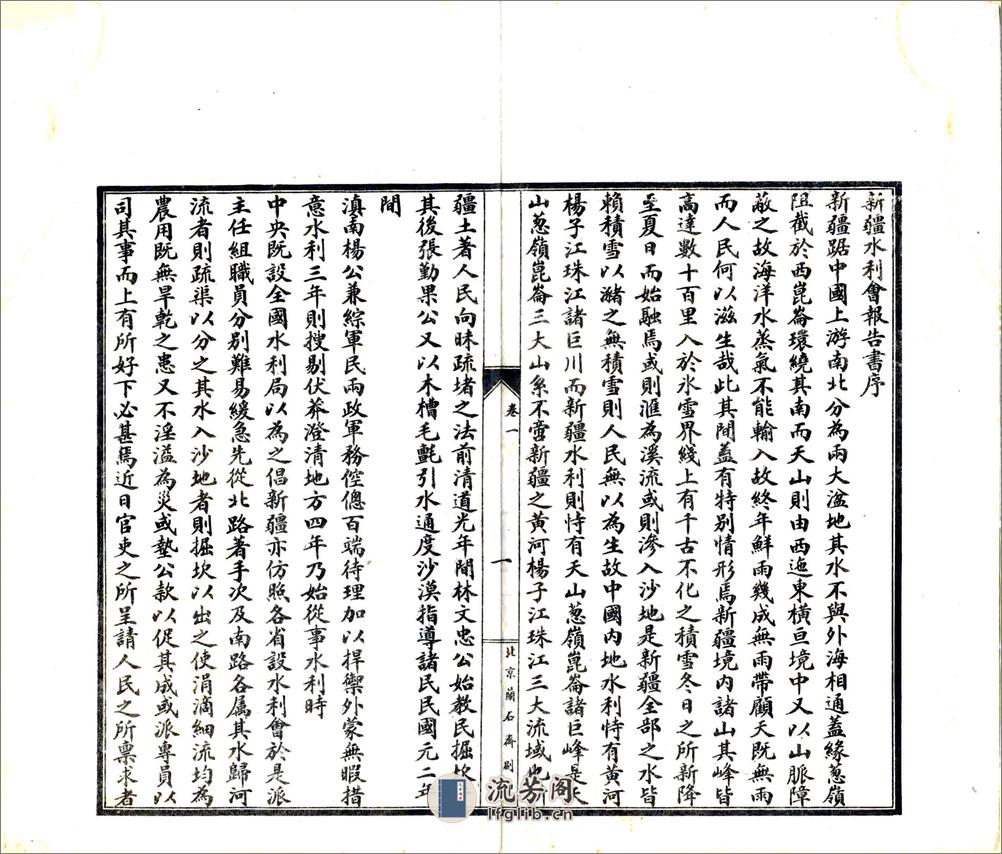 新疆水利會報告書序
新疆踞中國上游南北分為兩大湓地其水不與外海相通蓋緣葱嶺
阻截於西崑崙環繞其南而天山則由西迤東橫亘境中又以山脈障
蔽之故海洋水蒸氣不能輸入故終年鮮雨幾成無雨帶顧天既無雨
而人民何以滋生哉此其間蓋有特别情形焉新疆境内諸山其峰皆
高達數十百里入於氷雪界綫上有千古不化之積雪冬日之所新降
至夏日而始融焉或則滙為溪流或則滲入沙地是新疆全部之水皆
賴積雪以瀦之無積雪則人民無以為生故中國内地水利恃有黃河
楊子江珠江諸巨川而新疆水利則恃有天山葱嶺崑崙諸巨峰是天
山葱嶺崑崙三大山系不啻新疆之黃河楊子江珠江三大流域也
疆土著人民向昧疏堵之法前清道光年間林文忠公始教民掘坎
其後張勤果公又以木槽毛氈引水通度沙漠指導諸民民國元二年
間
滇南楊公兼綜軍民兩政軍務倥傯百端待理加以捍禦外蒙無暇措
意水利三年則搜剔伏莽澄清地方四年乃始從事水利時
中央既設全國水利局以為之倡新疆亦仿照各省設水利會於是派
主任組職員分别難易緩急先從北路著手次及南路各属其水歸河
流者則疏渠以分之其水入沙地者則掘坎以出之使涓滴細流均為
農用既無旱乾之患又不淫溢為災或墊公款以促其成或派專員以
司其事而上有所好下必甚焉近日官吏之所呈請人民之所禀求者
卷一
一
北京蘭石齋刷
流芳阁
lfglib.cn